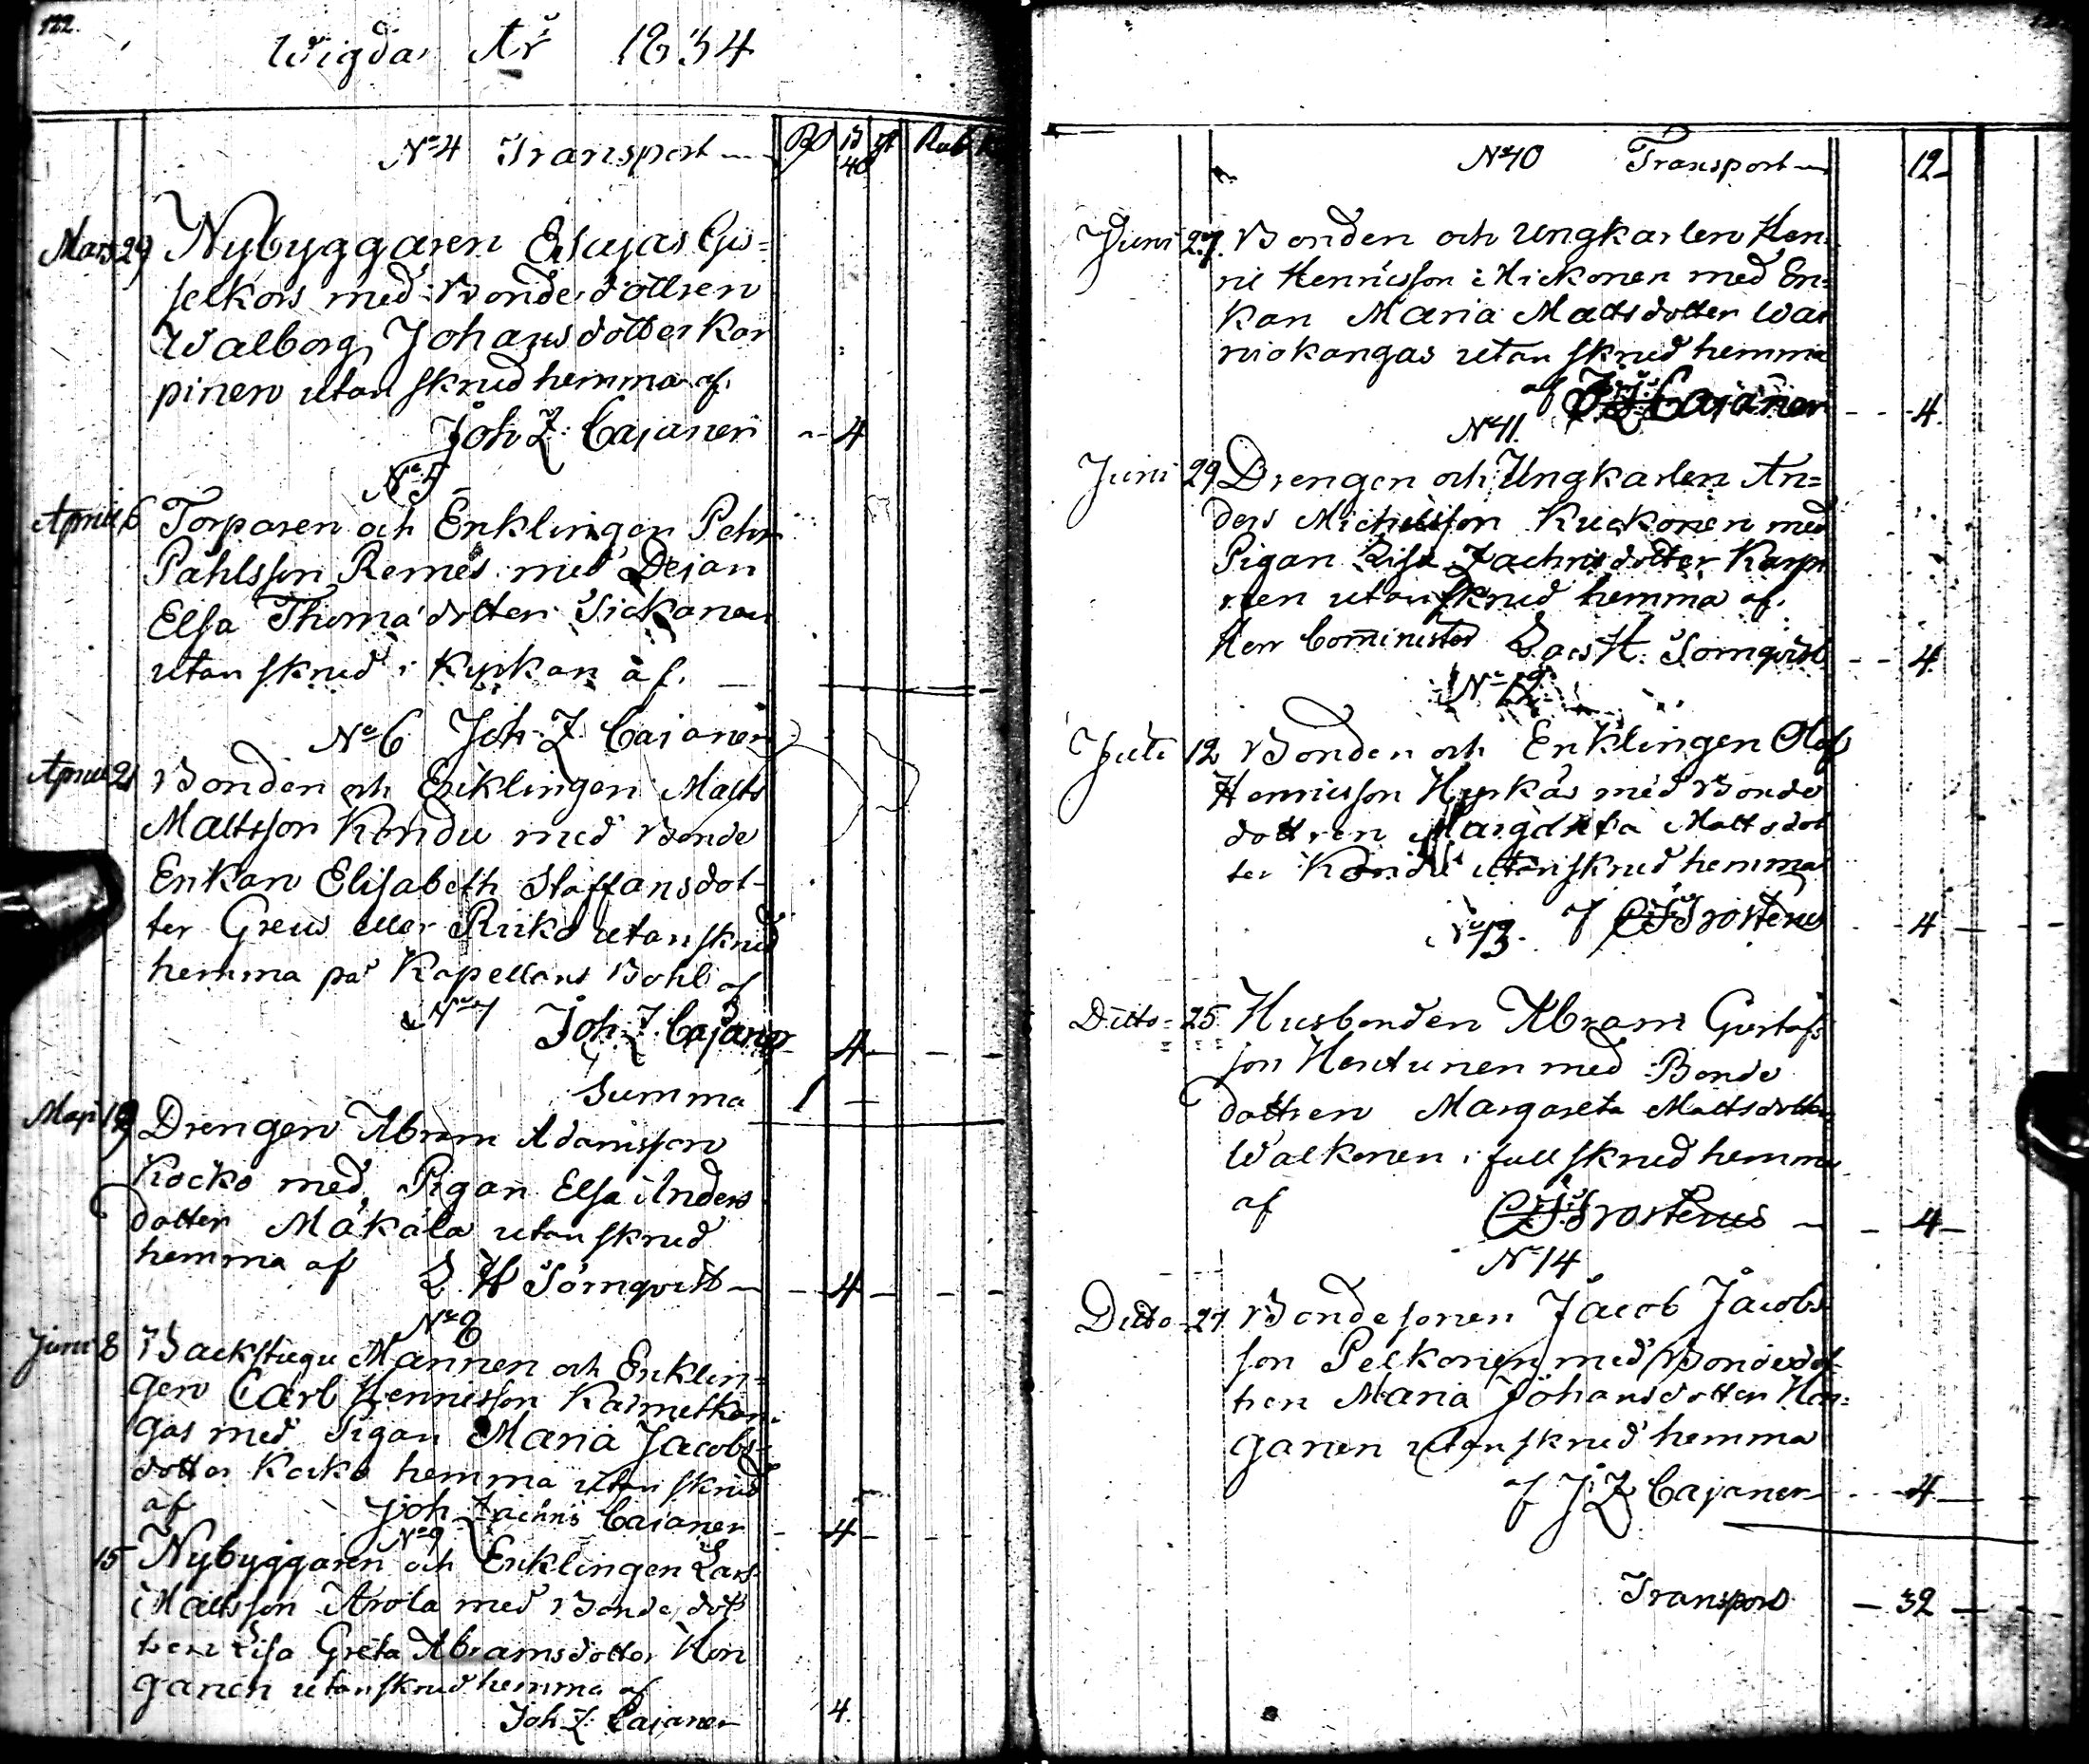 122.
Wigda År 1834
No 4 Transport — 40
Mars 29 Nybyggaren Esajas Gis=
selkors med Bondedottren
Walborg Johansdotter Kar
pinen utan skrud hemma af
Joh Z: Cajaner — 4
No 5
Aprill 6 Torparen och Enklingen Pehr
Påhlsson Remes med Dejan
Elsa Thomädotter Sickanen
utan skrud i Kyrkan af. —
No 6 Joh. Z Cajaner
Aprill 21 Bonden och Enklingen Matts
Mattsson Kondu med Bonde
Enkan Elisabeth Staffansdot-
ter Greus eller Ruko utan skrud
hemma på Kapellans Bohl af
No 7 Joh. Z. Cajaner 4 —
Summa 1 —
Maji 19 Drengen Abram Adamsson
Kocko med Pigan Elsa Anders
dotter Mäkälä utan skrud
hemma af L H Törnqvist — 4 —
No 8
Juni 8 Backstugu Mannen och Enklin=
gen Carl Henricsson Kaimetkan
gas med Pigan Maria Jacobs=
dotter Kocko hemma utan skrud
af Joh Zachris Cajaner — 4 —
No 9
15 Nybyggaren och Enklingen Lars
Mattsson Arola med Bonde dot
tren Lisa Greta Abramsdotter Hon
ganen utan skrud hemma af
Joh Z. Cajaner 4.
No 10 Transport — 12 —
Juni 27. Bonden och Ungkarlen Hen
ric Henricsson Mickonen med En=
kan Maria Mattsdotter War
niokangas utan skrud hemma
af J Z Cajaner — 4.
No 11.
Juni 29 Drengen och Ungkarlen An=
ders Michelsson Kuckonen med
Pigan Lisa Zachrisdotter Karpi
nen utan skrud hemma af
Herr Comminister Lars H. Törnqvist — 4.
No 12
Juli 12 Bonden och Enklingen Olof
Henricsson Hyrkäs med Bonde
dottren Margareta Mattsdot
ter Kondu utan skrud hemma
No 13. f CJ Frosterus 4 —
Ditto - 25 Husbonden Abram Gustafs
son Hentunen med Bonde
dottren Margareta Mattsdotter
Walkonen i full skrud hemma
af CJ Frosterus — 4 —
No 14
Ditto - 27 Bondesonen Jacob Jacobs
son Pelkonen med Bondedot
tren Maria Johansdotter Hon=
ganen utan skrud hemma
af J. Z Cajaner — 4 —
Transport — 32 —